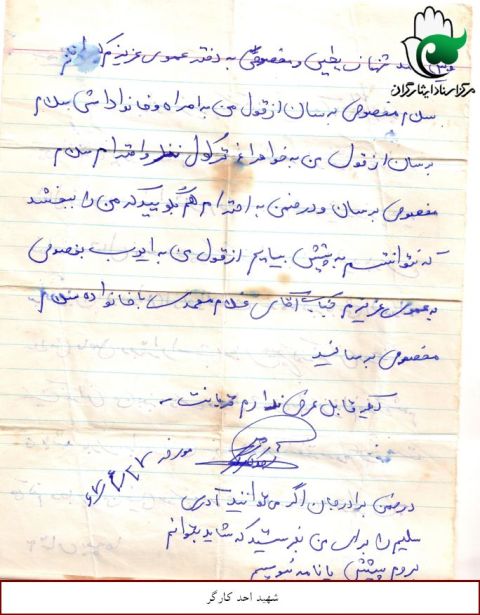 مرکز اسناد ایثارگران
بخصوصی به دختر عموی عزیزم
سلام مخصوص برسان از قول من به امراه و خانواداش سلام
برسان از قول من به خواهر قزگول نظر و احترام سلام
مخصوص برسان و در ضمن به احترام هم بگویید که من را ببخشد
که نتوانستم به پیشش بیایم از قول من به ایوب بخصوص
به عموی عزیزم جناب آقای غلام محمدی با خانواده سلام
مخصوص برسانید
دیگر قابل عرض ندارم قربانت
مورخه ۶۷/۴/۲۷
در ضمن برادر جان اگر می توانید آدرس
سلیم را برای من بفرستید که شاید بتوانم
بروم پیشش یا نامه بنویسم
شهید احد کارگر